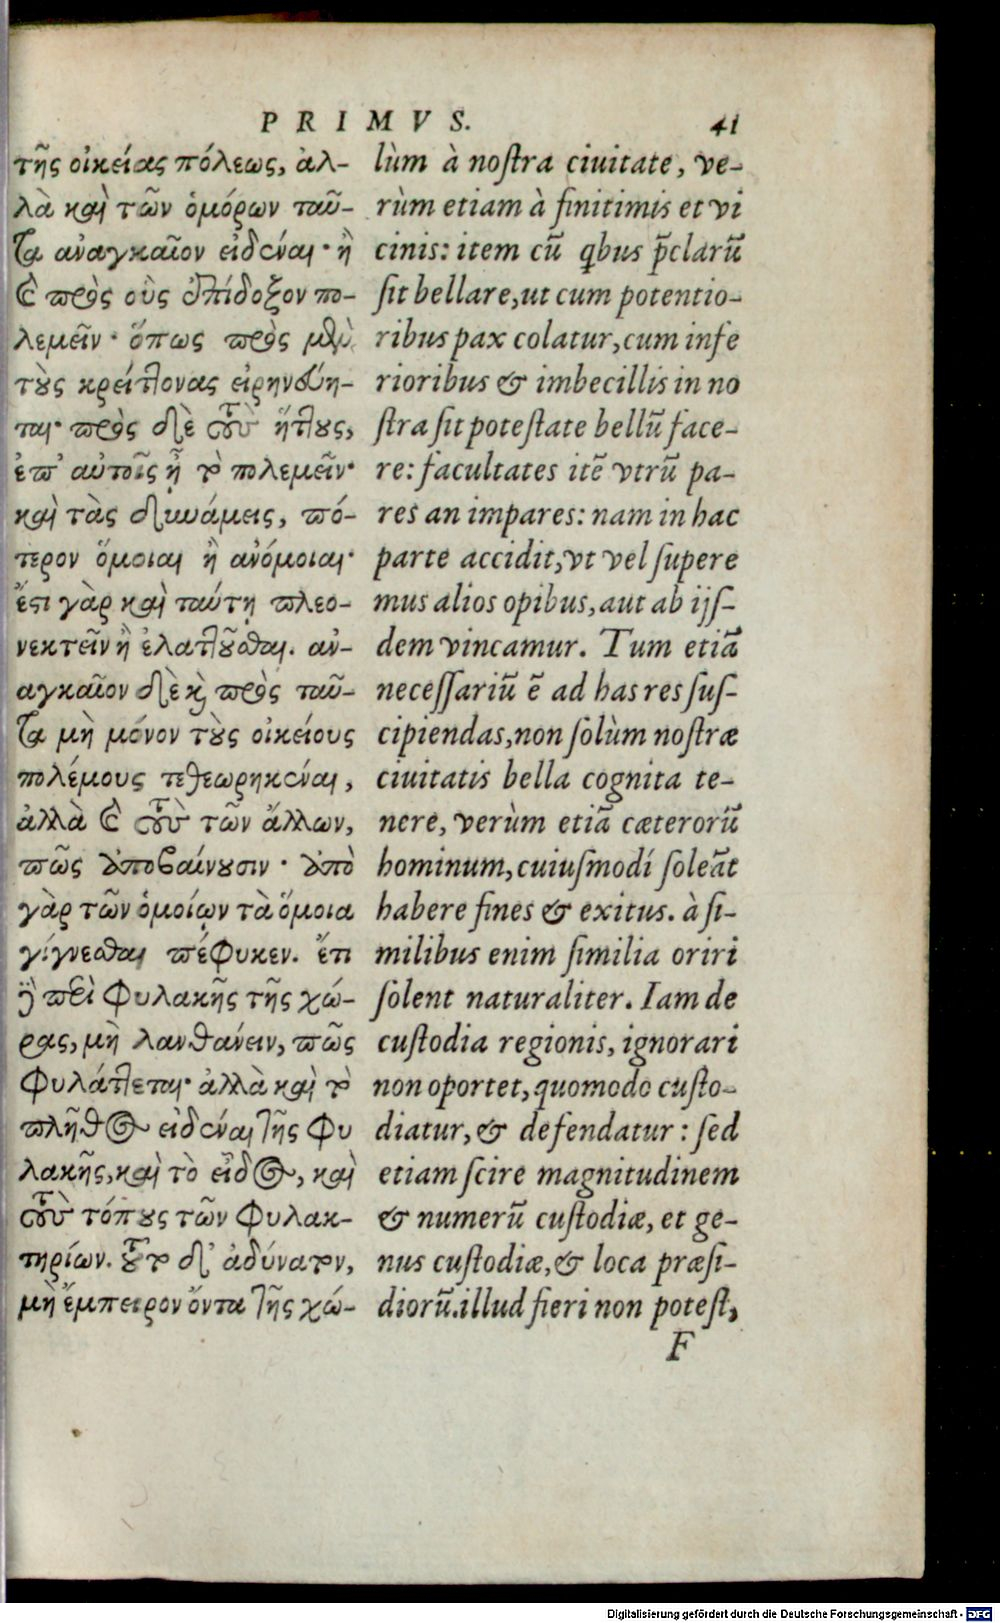 PRIMVS. 41
τῆς οἰκείας πόλεως, ἀλ-
λὰ καὶ τῶν ὁμόρων ταῦ-
τα ἀναγκαῖον εἰδέναι· ἢ
καὶ πρὸς οὓς ἐπίδοξον πο-
λεμεῖν· ὅπως πρὸς μὲν
τοὺς κρείττονας εἰρηνεύη-
ται· πρὸς δὲ τοὺς ἥττους,
ἐπ' αὐτοῖς ᾖ τὸ πολεμεῖν·
καὶ τὰς δυνάμεις, πό-
τερον ὅμοιαι ἢ ἀνόμοιαι·
ἔστι γὰρ καὶ ταύτῃ πλεο-
νεκτεῖν ἢ ἐλαττοῦσθαι. ἀν-
αγκαῖον δὲ καὶ πρὸς ταῦ-
τα μὴ μόνον τοὺς οἰκείους
πολέμους τεθεωρηκέναι,
ἀλλὰ καὶ τοὺς τῶν ἄλλων,
πῶς ἀποβαίνουσιν· ἀπὸ
γὰρ τῶν ὁμοίων τὰ ὅμοια
γίγνεσθαι πέφυκεν. ἔτι
δὲ περὶ φυλακῆς τῆς χώ-
ρας, μὴ λανθάνειν, πῶς
φυλάττεται· ἀλλὰ καὶ τὸ
πλῆθος εἰδέναι τῆς φυ
λακῆς, καὶ τὸ εἶδος, καὶ
τοὺς τόπους τῶν φυλακ-
τηρίων. τοῦτο δ' ἀδύνατον,
μὴ ἔμπειρον ὄντα τῆς χώ-
lùm à nostra ciuitate, ve-
rùm etiam à finitimis et vi
cinis: item cū qbus p̄clarū
sit bellare, ut cum potentio-
ribus pax colatur, cum infe
rioribus & imbecillis in no
stra sit potestate bellū face-
re: facultates itē vtrū pa-
res an impares: nam in hac
parte accidit, vt vel supere
mus alios opibus, aut ab ijs-
dem vincamur. Tum etiā
necessariū ē ad has res sus-
cipiendas, non solùm nostræ
ciuitatis bella cognita te-
nere, verùm etiā cæterorū
hominum, cuiusmodi soleāt
habere fines & exitus. à si-
milibus enim similia oriri
solent naturaliter. Iam de
custodia regionis, ignorari
non oportet, quomodo custo-
diatur, & defendatur: sed
etiam scire magnitudinem
& numerū custodiæ, et ge-
nus custodiæ, & loca præsi-
diorū. illud fieri non potest,
F
Digitalisierung gefördert durch die Deutsche Forschungsgemeinschaft - DFG